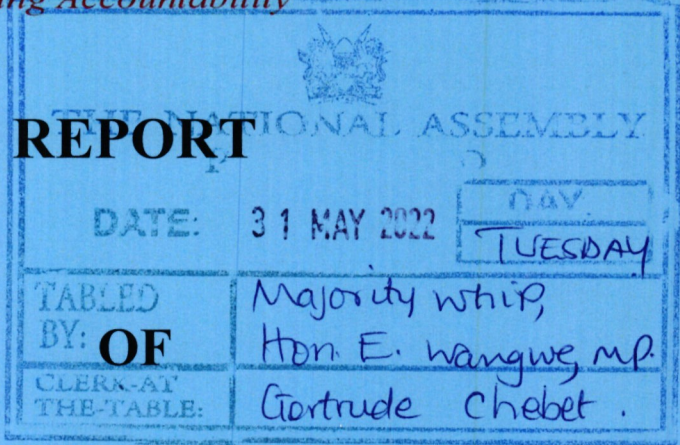 ing Accountability
THE NATIONAL ASSEMBLY
REPORT
DATE: 31 MAY 2022 DAY
TUESDAY
TABLED BY: Majority whip,
Hon. E. Wangwe, MP.
OF
CLERK-AT THE-TABLE: Gertrude Chebet.